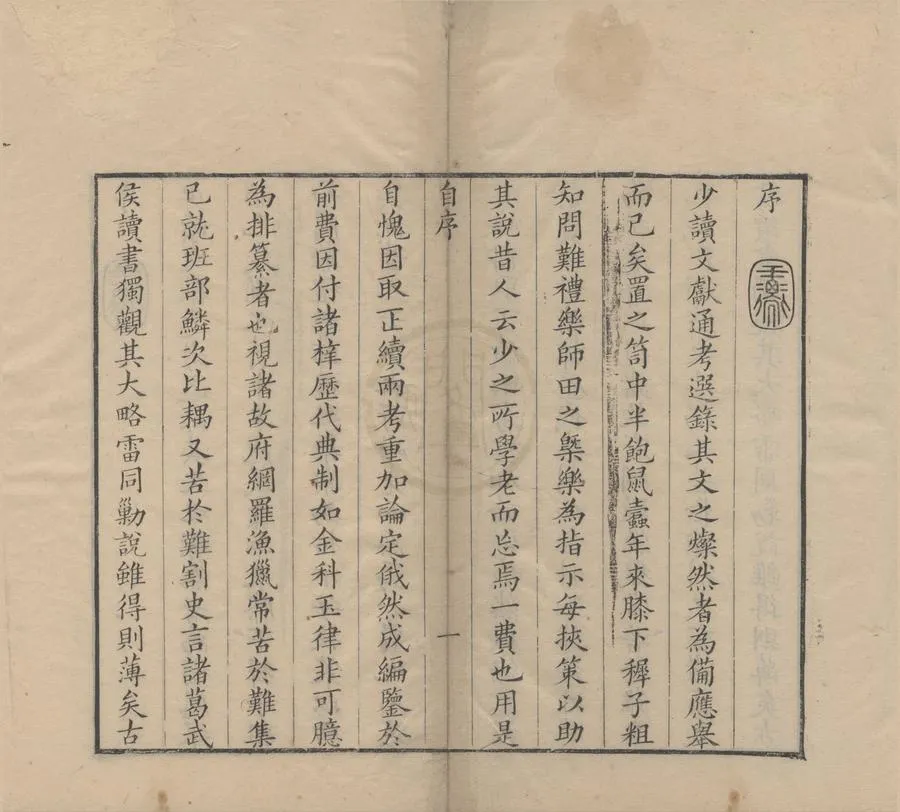 序
少讀文獻通考選錄其文之燦然者為備應舉
而已矣置之笥中半飽鼠蠹年來膝下穉子粗
知問難禮樂師田之槩樂為指示每挾策以助
其說昔人云少之所學老而忘焉一費也用是
自序
一
自愧因取正續兩考重加論定俄然成編鑒於
前費因付諸梓歷代典制如金科玉律非可臆
為排纂者也視諸故府網羅漁獵常苦於難集
已就班部鱗次比耦又苦於難割史言諸葛武
侯讀書獨觀其大略雷同勦說雖得則薄矣古